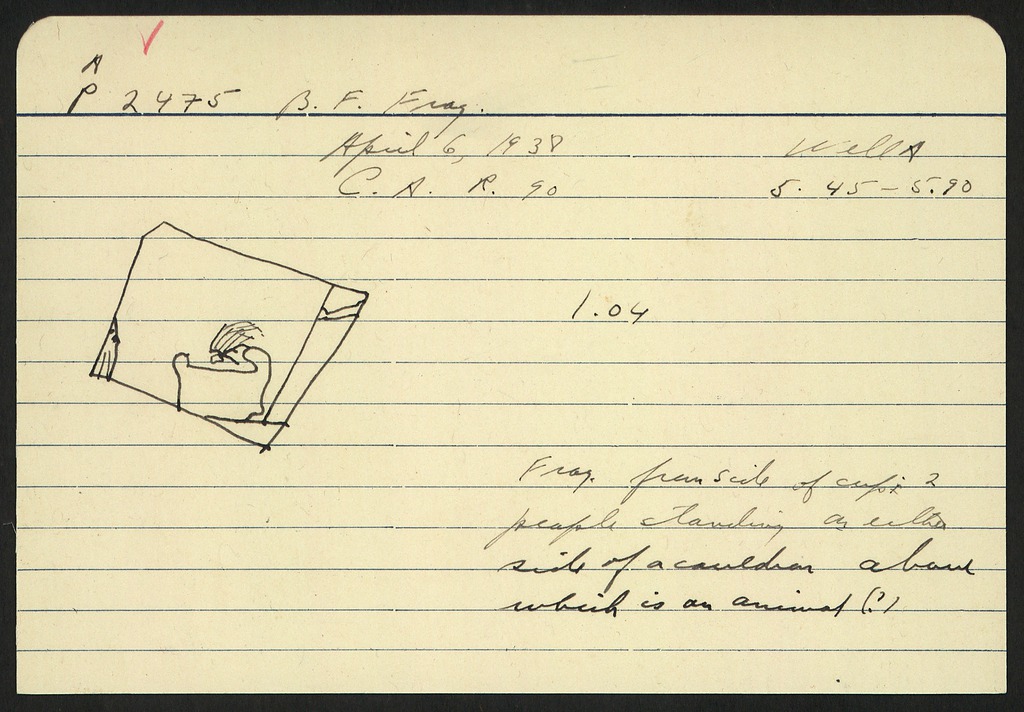 A
P 2475 B. F. Frag.
April 6, 1938 Well A
C. A. R. 90 5.45-5.90
1.04
Frag. from side of cup: 2
people standing on either
side of a cauldron above
which is an animal (?)